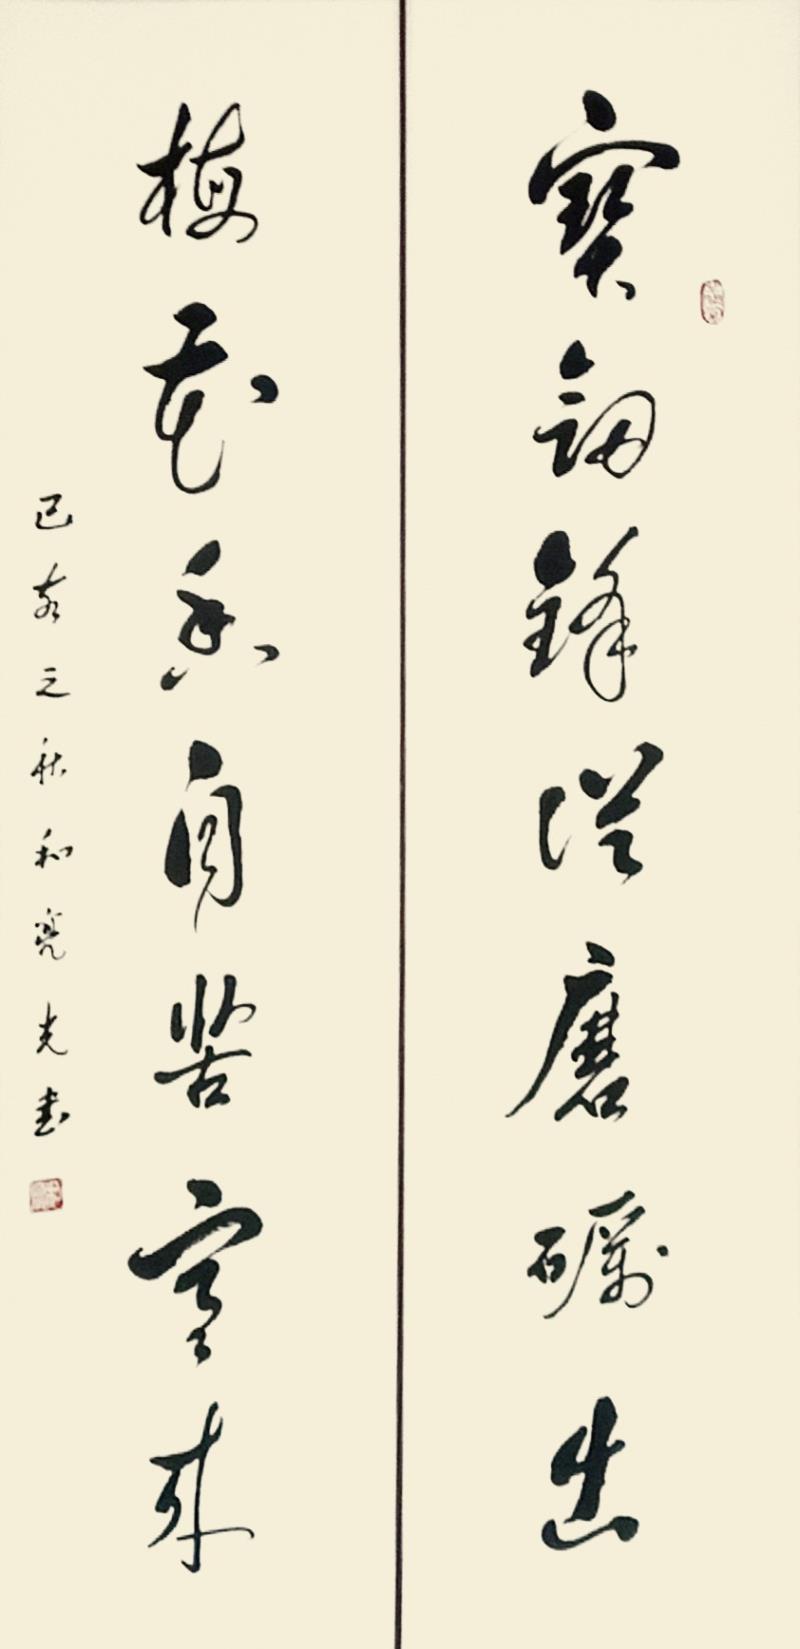 寶劔鋒從磨礪出
梅花香自苦寒來
己亥之秋和亮光書